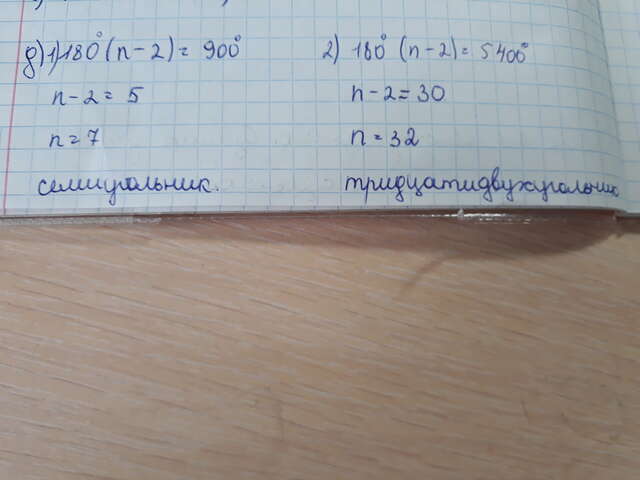 д) 1) 180° (n-2) = 900°
n-2 = 5
n = 7
семиугольник.
2) 180° (n-2) = 5400°
n-2 = 30
n = 32
тридцатидвухугольник